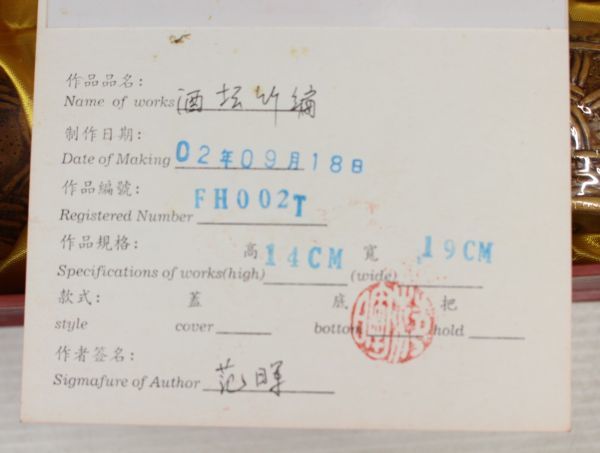 作品品名:
Name of works 酒坛竹编
制作日期:
Date of Making 02年09月18日
作品編號:
Registered Number FH002T
作品规格: 高 14CM 寬 19CM
Specifications of works(high) (wide)
款式: 蓋 底 把
style cover bottom hold
作者签名:
Sigmafure of Author 范晖